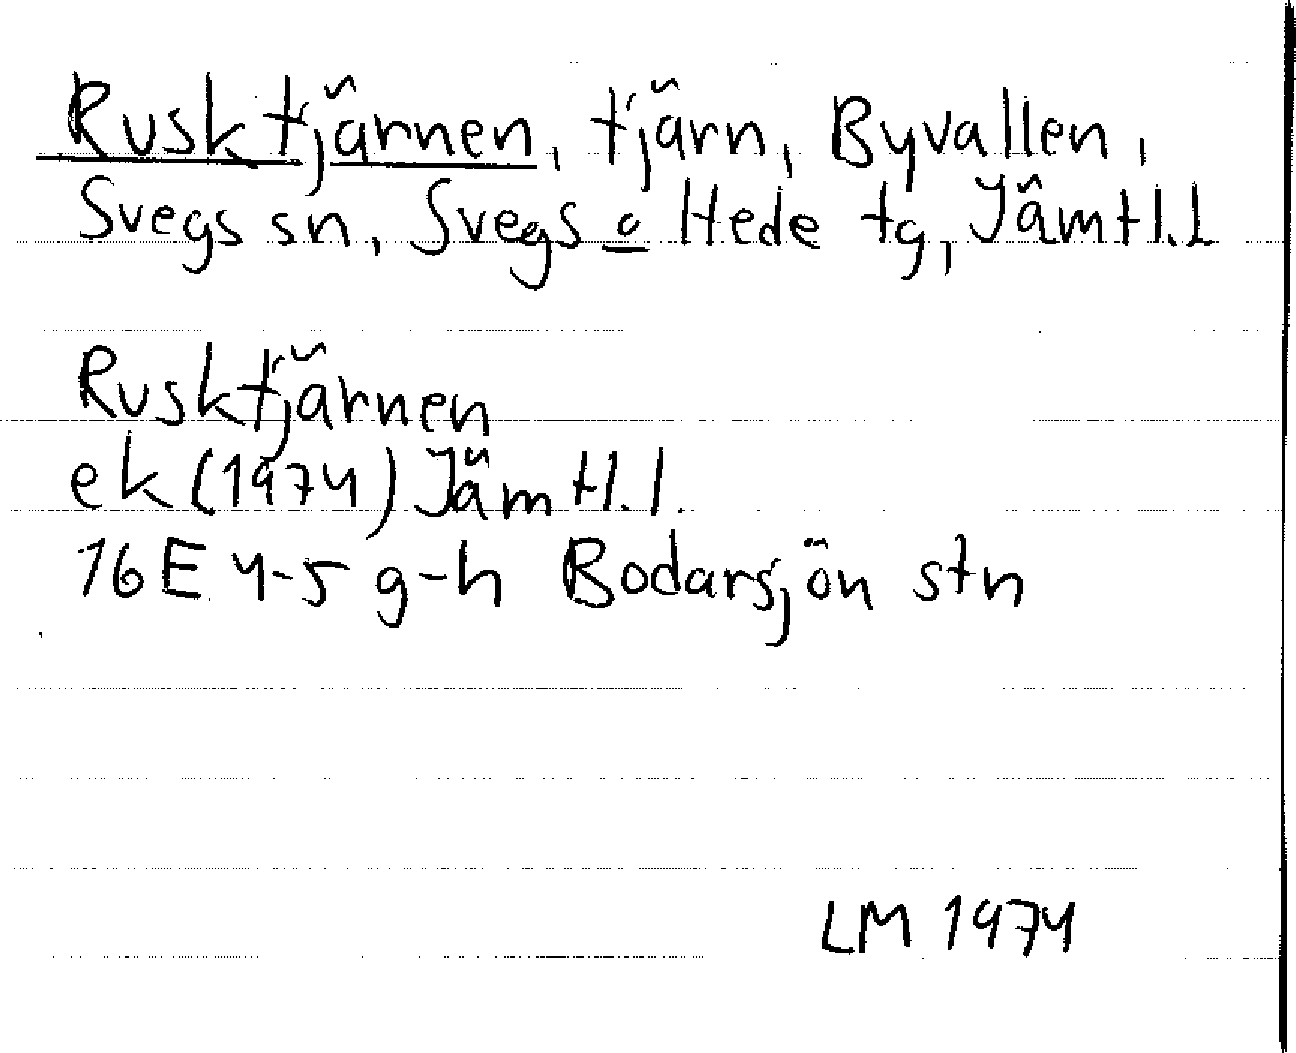 Rusktjärnen, tjärn, Byvallen,
Svegs sn, Svegs o Hede tg, Jämtl.l
Rusktjärnen
ek (1974) Jämtl.l.
16E 4-5 g-h Bodarsjön stn
LM 1974